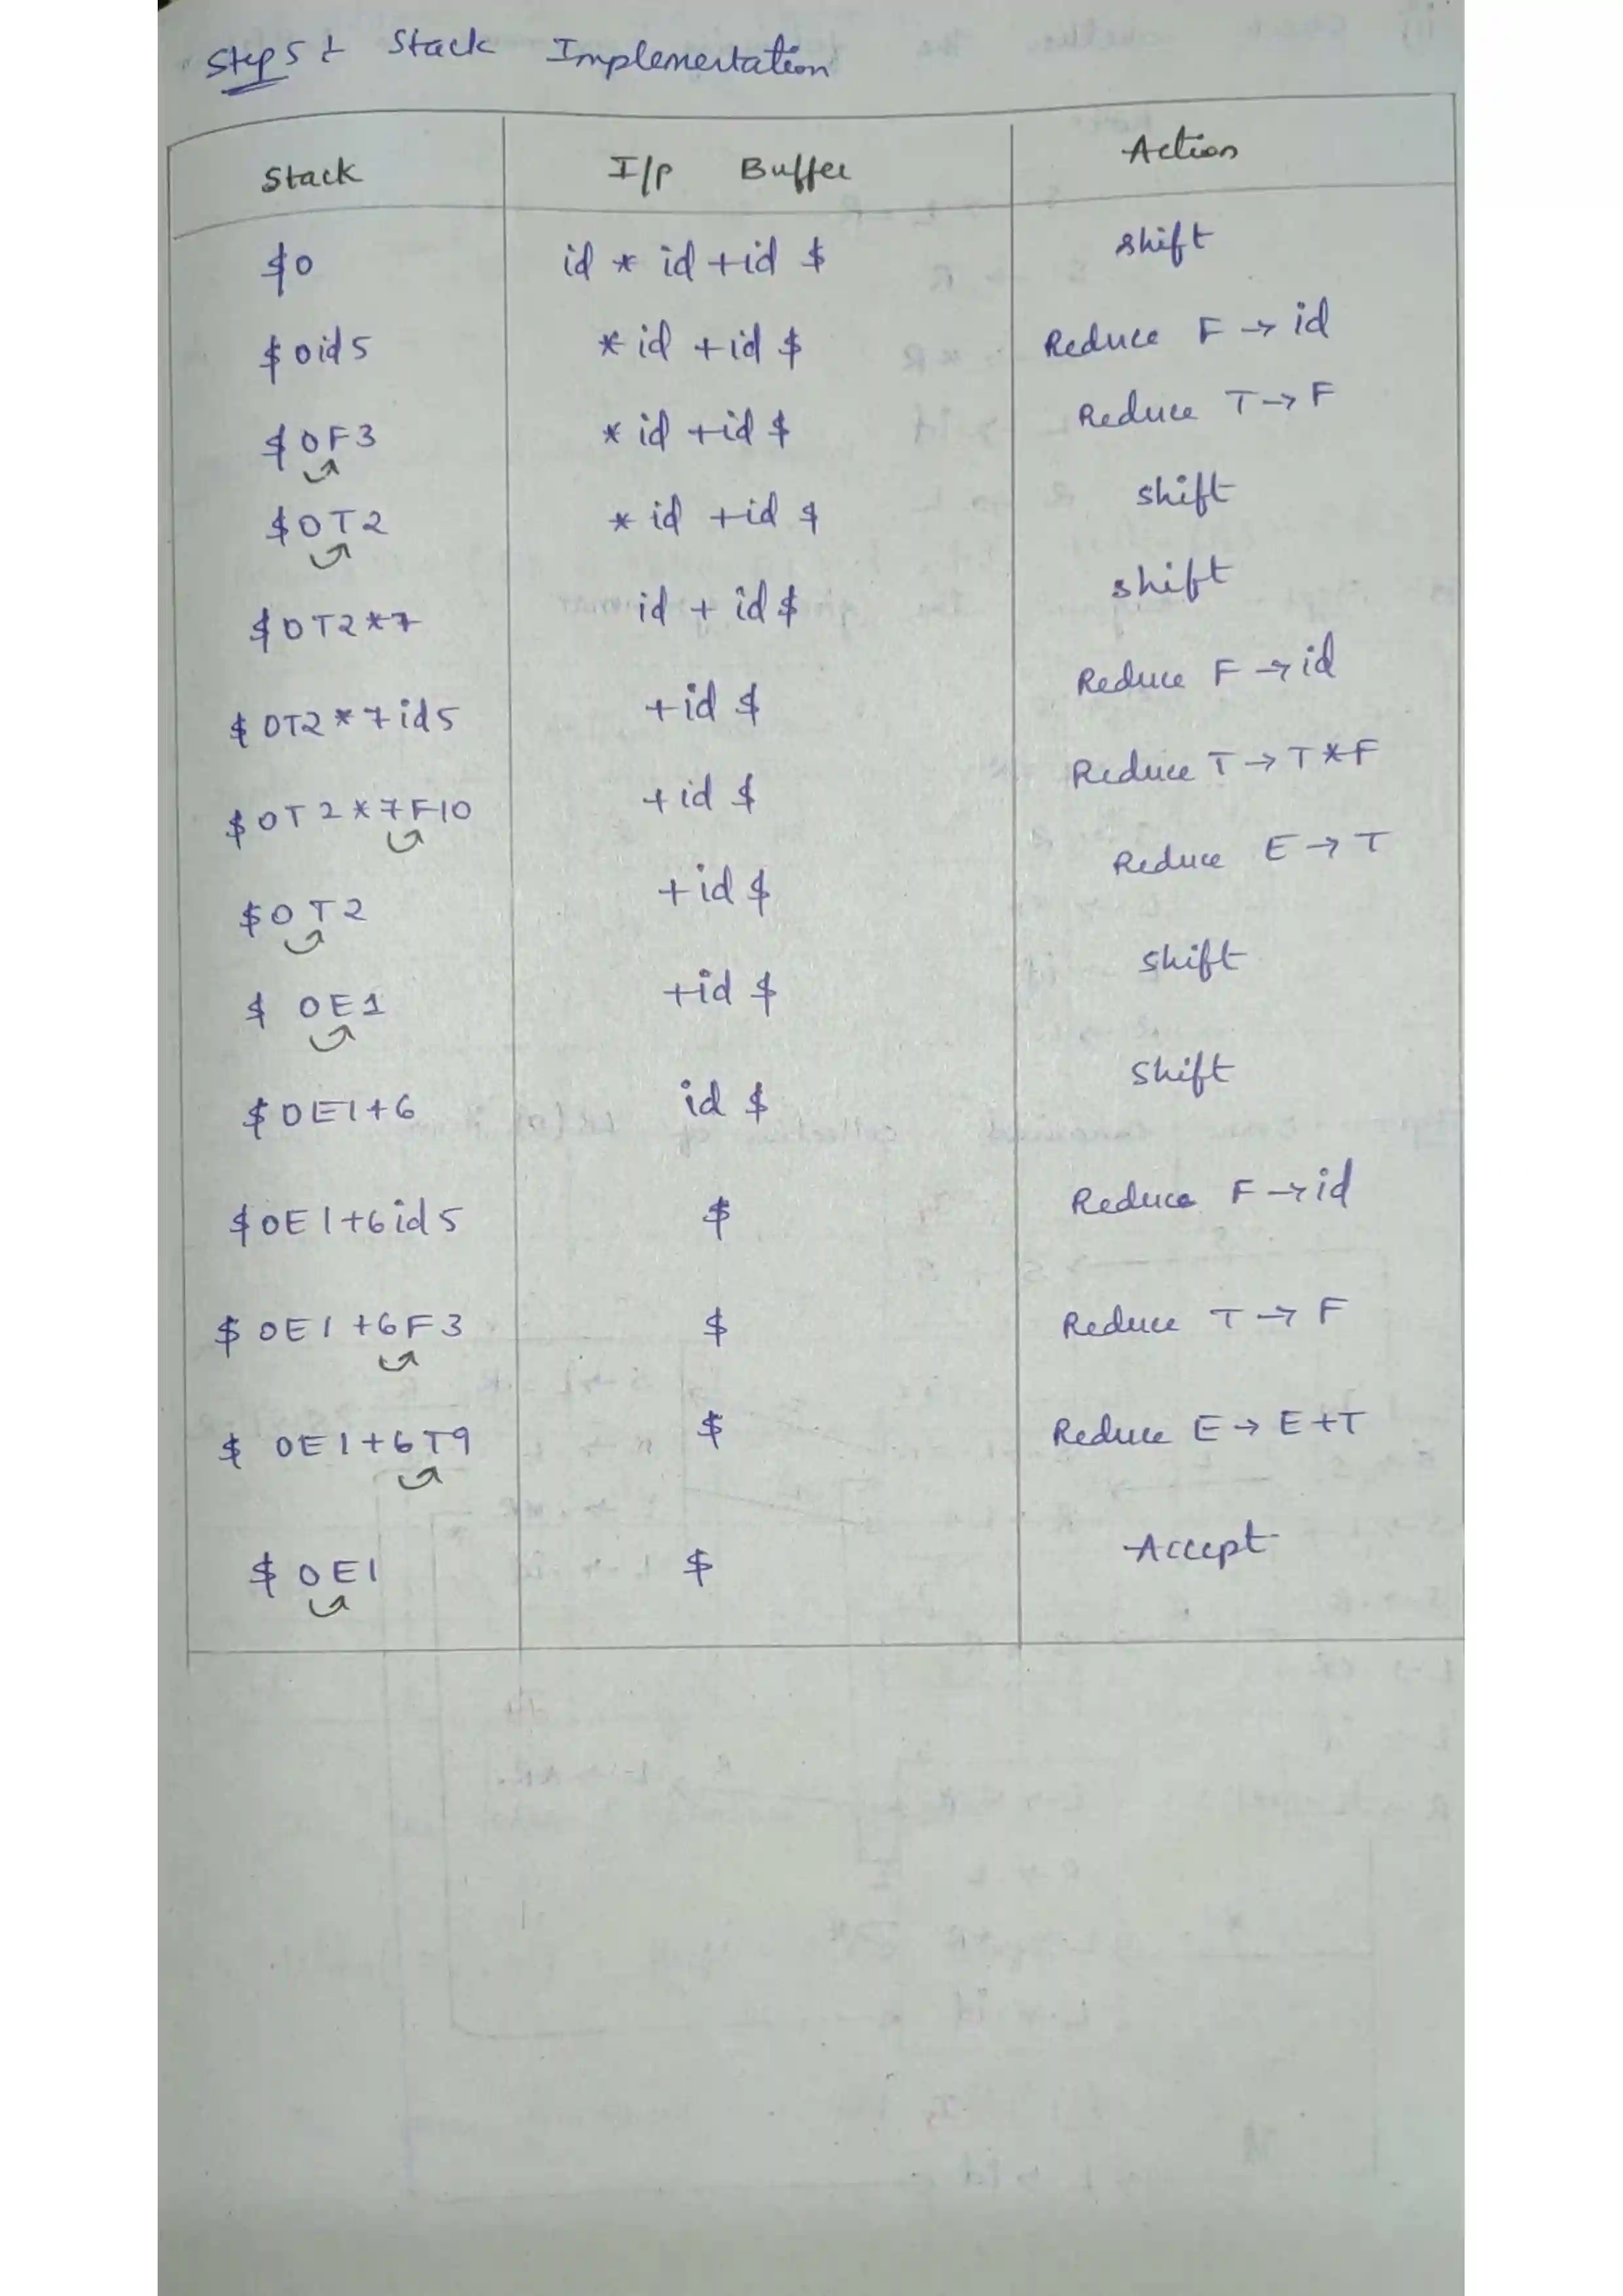 Step 5 : Stack Implementation
Stack I/p Buffer Action
$0 id * id +id $ shift
$0id5 * id +id $ Reduce F → id
$0F3 * id +id $ Reduce T → F
$0T2 * id +id $ shift
$0T2*7 id + id $ shift
$0T2*7id5 +id $ Reduce F → id
$0T2*7F10 +id $ Reduce T → T*F
$0T2 +id $ Reduce E → T
$ 0E1 +id $ shift
$0E1+6 id $ shift
$0E1+6id5 $ Reduce F → id
$0E1+6F3 $ Reduce T → F
$ 0E1+6T9 $ Reduce E → E+T
$ 0E1 $ Accept